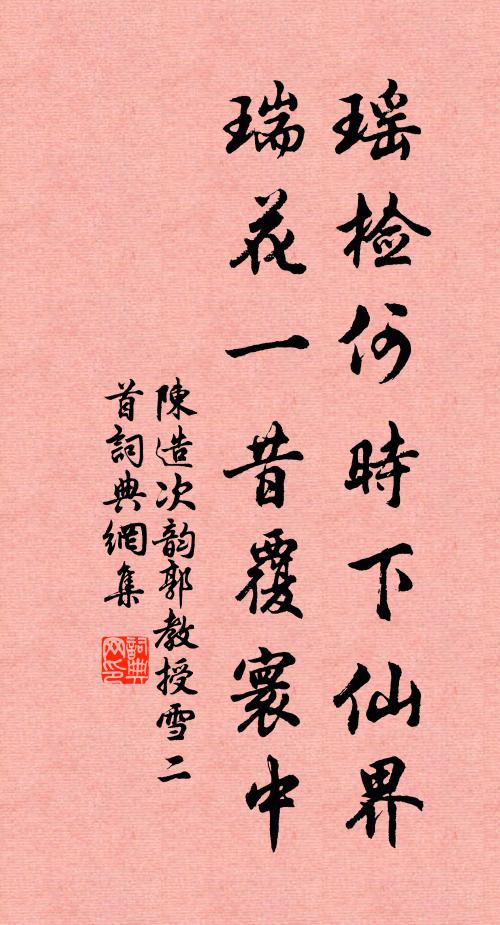 瑶检何時下仙界
瑞花一昔覆寰中
陳造次韵郭教授雪二
首詞典網集
詞典
网印